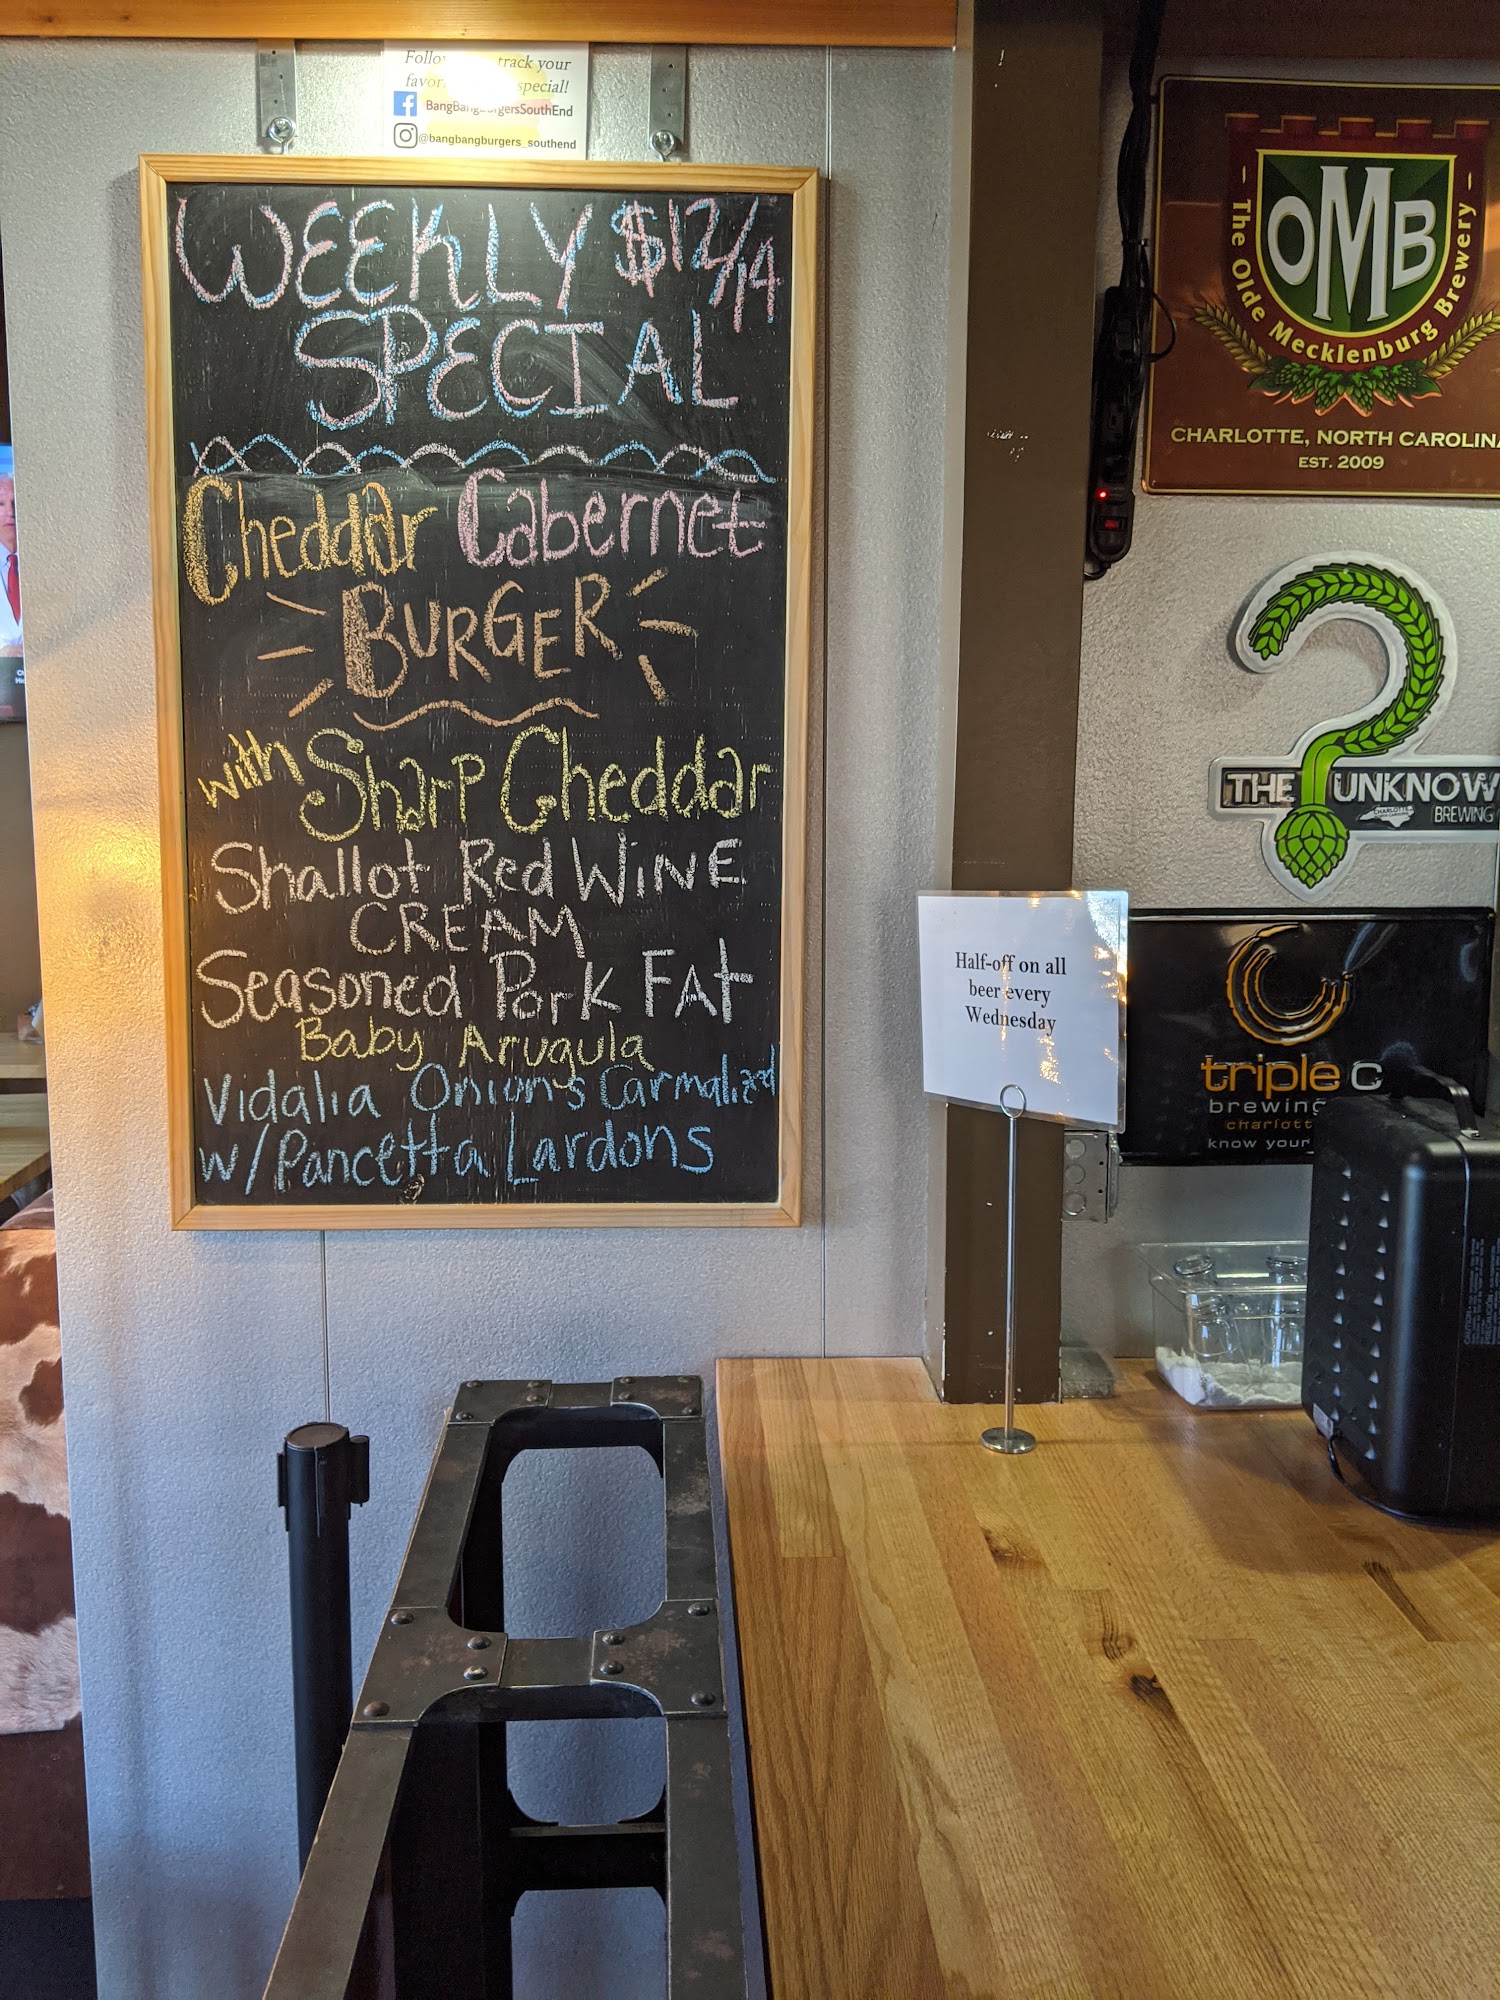 Follow track your
favor special!
BangBangBurgersSouthEnd
@bangbangburgers_southend
WEEKLY $12/14
SPECIAL
Cheddar Cabernet
BURGER
with Sharp Cheddar
Shallot Red WiNE
CREAM
Seasoned Pork FAt
Baby Arugula
Vidalia Onions Carmalized
w/Pancetta Lardons
OMB
- The Olde Mecklenburg Brewery -
CHARLOTTE, NORTH CAROLINA
EST. 2009
THE UNKNOW
BREWING
Half-off on all
beer every
Wednesday
triple c
brewing
charlott
know your
CAUTION